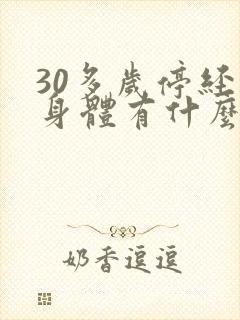 30多歲停经
身體有什麼
奶香逗逗